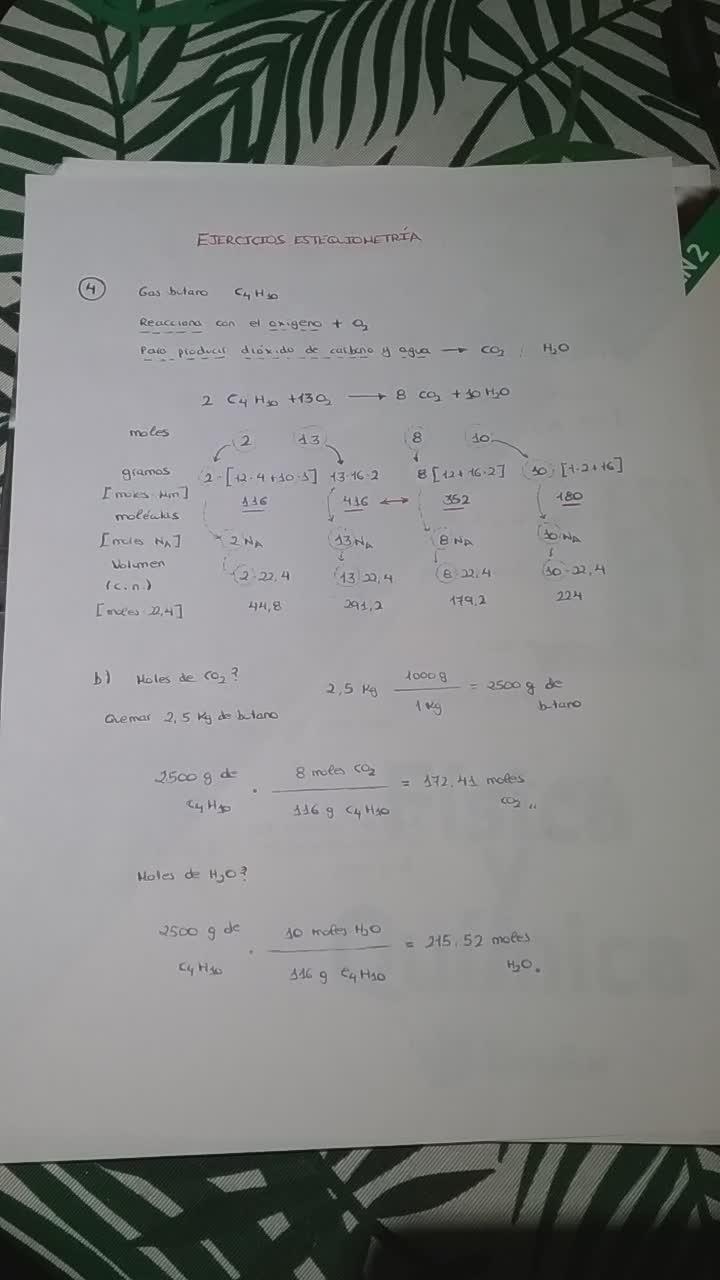 EJERCICIOS ESTEQUIOMETRÍA
4 Gas butano C4H10
Reacciona con el oxígeno + O2
Para producir dióxido de carbono y agua → CO2 ; H2O
2 C4H10 + 13O2 → 8 CO2 + 10 H2O
moles 2 13 8 10
gramos 2·[12·4+10·1] 13·16·2 8[12+16·2] 10·[1·2+16]
[moles·Mm] 116 416 ↔ 352 180
moléculas
[moles NA] 2NA 13NA 8NA 10NA
Volumen
(c.n.) 2·22,4 13·22,4 8·22,4 10·22,4
[moles·22,4] 44,8 291,2 179,2 224
b) Moles de CO2? 2,5 Kg 1000g / 1Kg = 2500g de butano
Quemar 2,5 Kg de butano
2500 g de C4H10 · 8 moles CO2 / 116 g C4H10 = 172,41 moles CO2
Moles de H2O?
2500 g de C4H10 · 10 moles H2O / 116 g C4H10 = 215,52 moles H2O.
N2